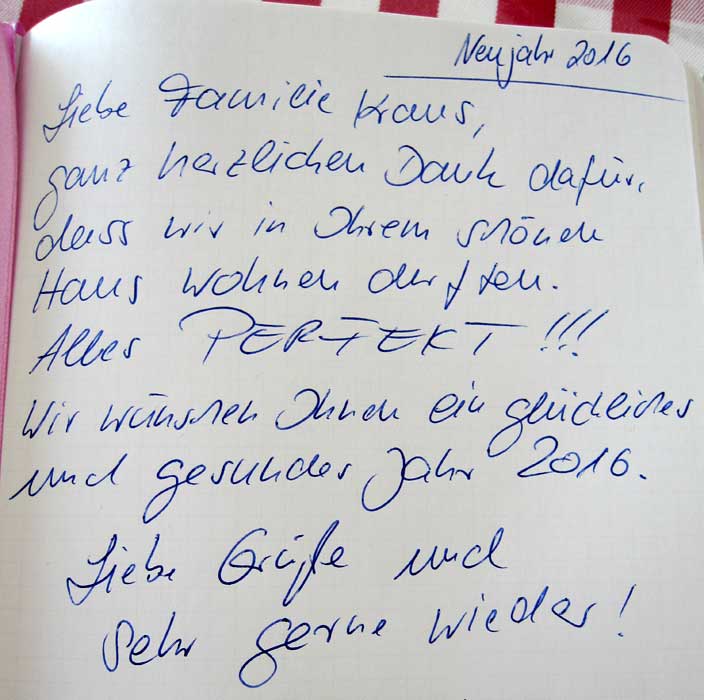 Neujahr 2016
Liebe Familie Kraus,
ganz herzlichen Dank dafür,
dass wir in Ihrem schönen
Haus wohnen durften.
Alles PERFEKT!!!
Wir wünschen Ihnen ein glückliches
und gesundes Jahr 2016.
Liebe Grüße und
sehr gerne wieder!